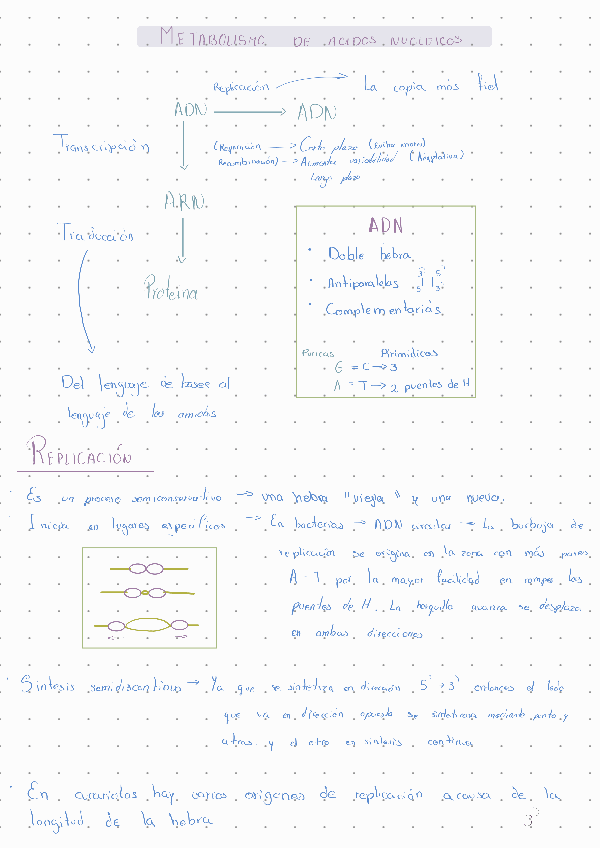 METABOLISMO DE ACIDOS NUCLEICOS
Replicación
La copia más fiel
ADN → ADN
Transcripción
(Reparación → Corto plazo (Evitar muerte)
Recombinación) → Aumenta variabilidad (Adaptativo)
Largo plazo
ARN
Traducción
Proteína
ADN
• Doble hebra
• Antiparalelas 3' 5' 5' 3'
• Complementarias
Puricas Pirimidicas
G ≡ C → 3
A = T → 2 puentes de H
Del lenguaje de bases al
lenguaje de los
REPLICACIÓN
Es un proceso semiconservativo → una hebra "vieja" y una nueva.
Inicia en lugares específicos → En bacterias → ADN circular → La burbuja de
replicación se origina en la zona con más pares
A-T por la mayor facilidad en romper los
puentes de H. La horquilla avanza se desplaza
en ambas direcciones
Síntesis semidiscontinua → Ya que se sintetiza en dirección 5' → 3' entonces el lado
que va en dirección opuesta se sintetiza mediante punto y
atras y el otro en sintesis continua
En eucariotas hay varios orígenes de replicación a causa de la
longitud de la hebra
3